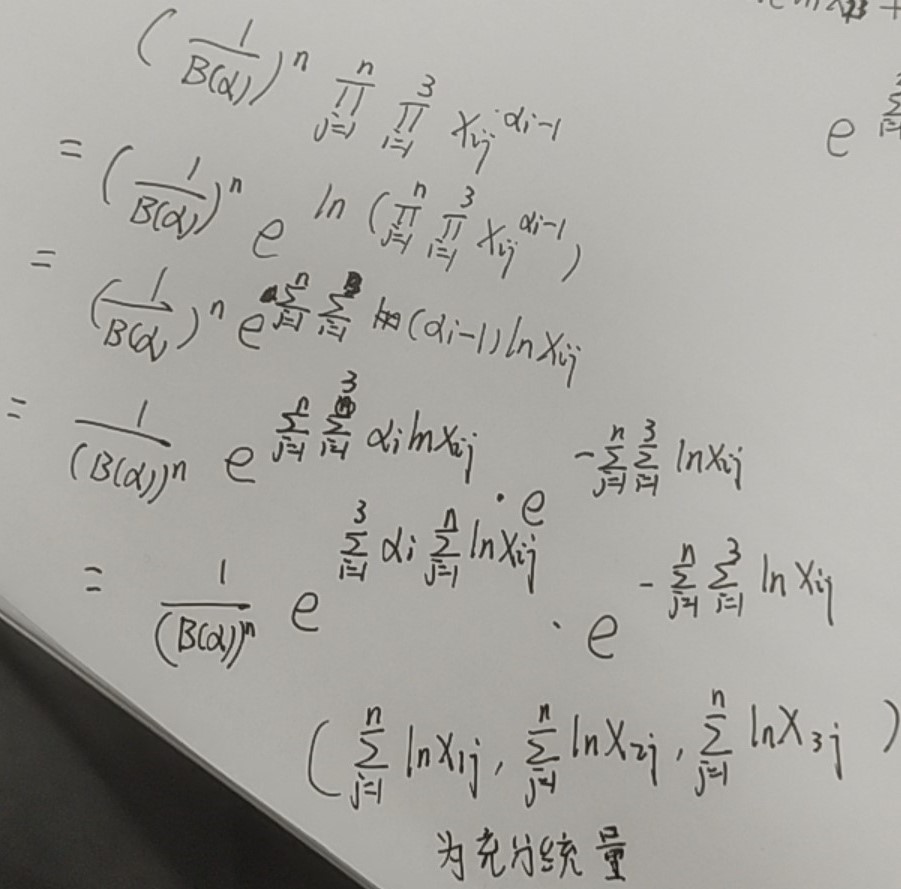 (1/B(α))^n ∏_{j=1}^{n} ∏_{i=1}^{3} x_{ij}^{αi-1}
= (1/B(α))^n e^{ln (∏_{j=1}^{n} ∏_{i=1}^{3} x_{ij}^{αi-1})}
= (1/B(α))^n e^{∑_{j=1}^{n} ∑_{i=1}^{3} (αi-1) ln x_{ij}}
= 1/(B(α))^n e^{∑_{j=1}^{n} ∑_{i=1}^{3} αi ln x_{ij}} · e^{-∑_{j=1}^{n} ∑_{i=1}^{3} ln x_{ij}}
= 1/(B(α))^n e^{∑_{i=1}^{3} αi ∑_{j=1}^{n} ln x_{ij}} · e^{-∑_{j=1}^{n} ∑_{i=1}^{3} ln x_{ij}}
(∑_{j=1}^{n} ln X_{1j}, ∑_{j=1}^{n} ln X_{2j}, ∑_{j=1}^{n} ln X_{3j})
为充分统量